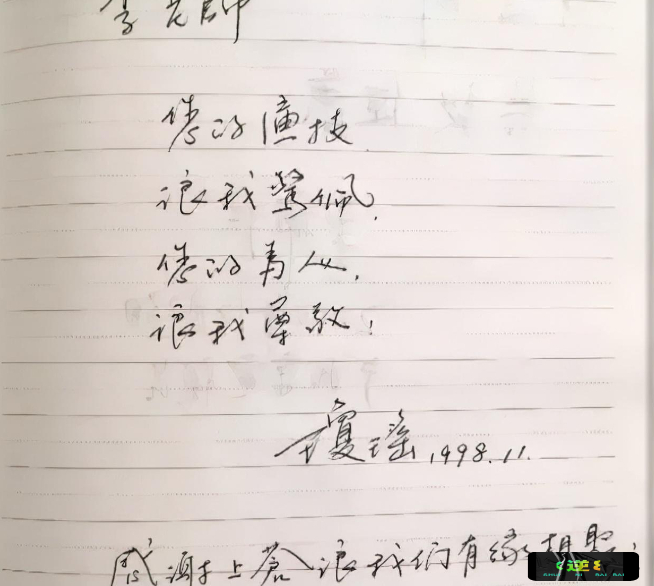 李老師
您的演技
讓我驚佩,
您的為人,
讓我尊敬!
瓊瑤 1998.11.
感謝上蒼讓我們有緣相聚,
逆